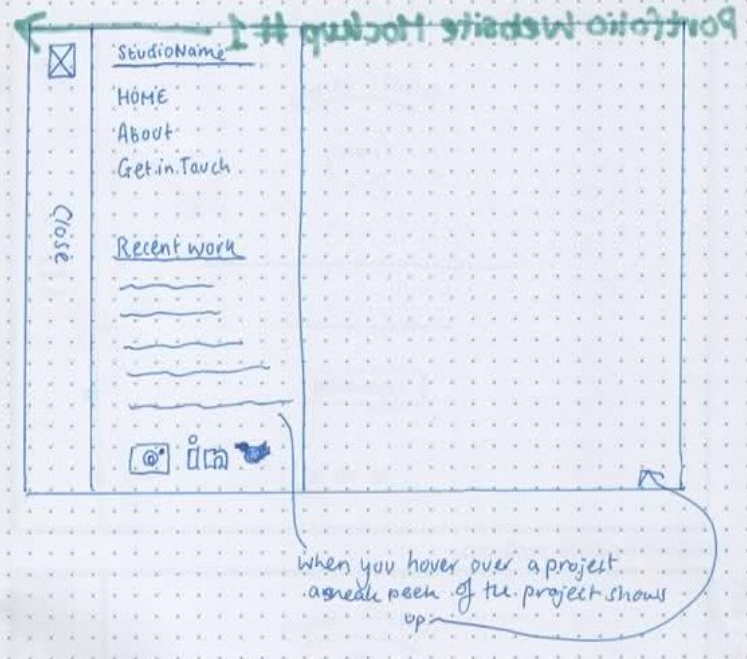 Portfolio Website Mockup #1
StudioName
HOME
About
Get in Touch
Close
Recent work
in
when you hover over a project
a sneak peek of the project shows
up